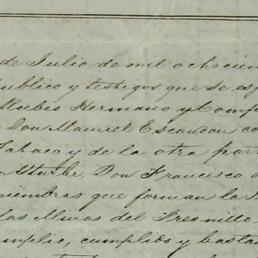 de Julio de mil ochocien
publico y testigos que se es
Rubio Hermano y Comp
Don Manuel Escandon co
Tabaco y de la otra par
Yturbe, Don Francisco
miembros que forman la
las Minas del Fresnillo
amplio, cumplido y basta